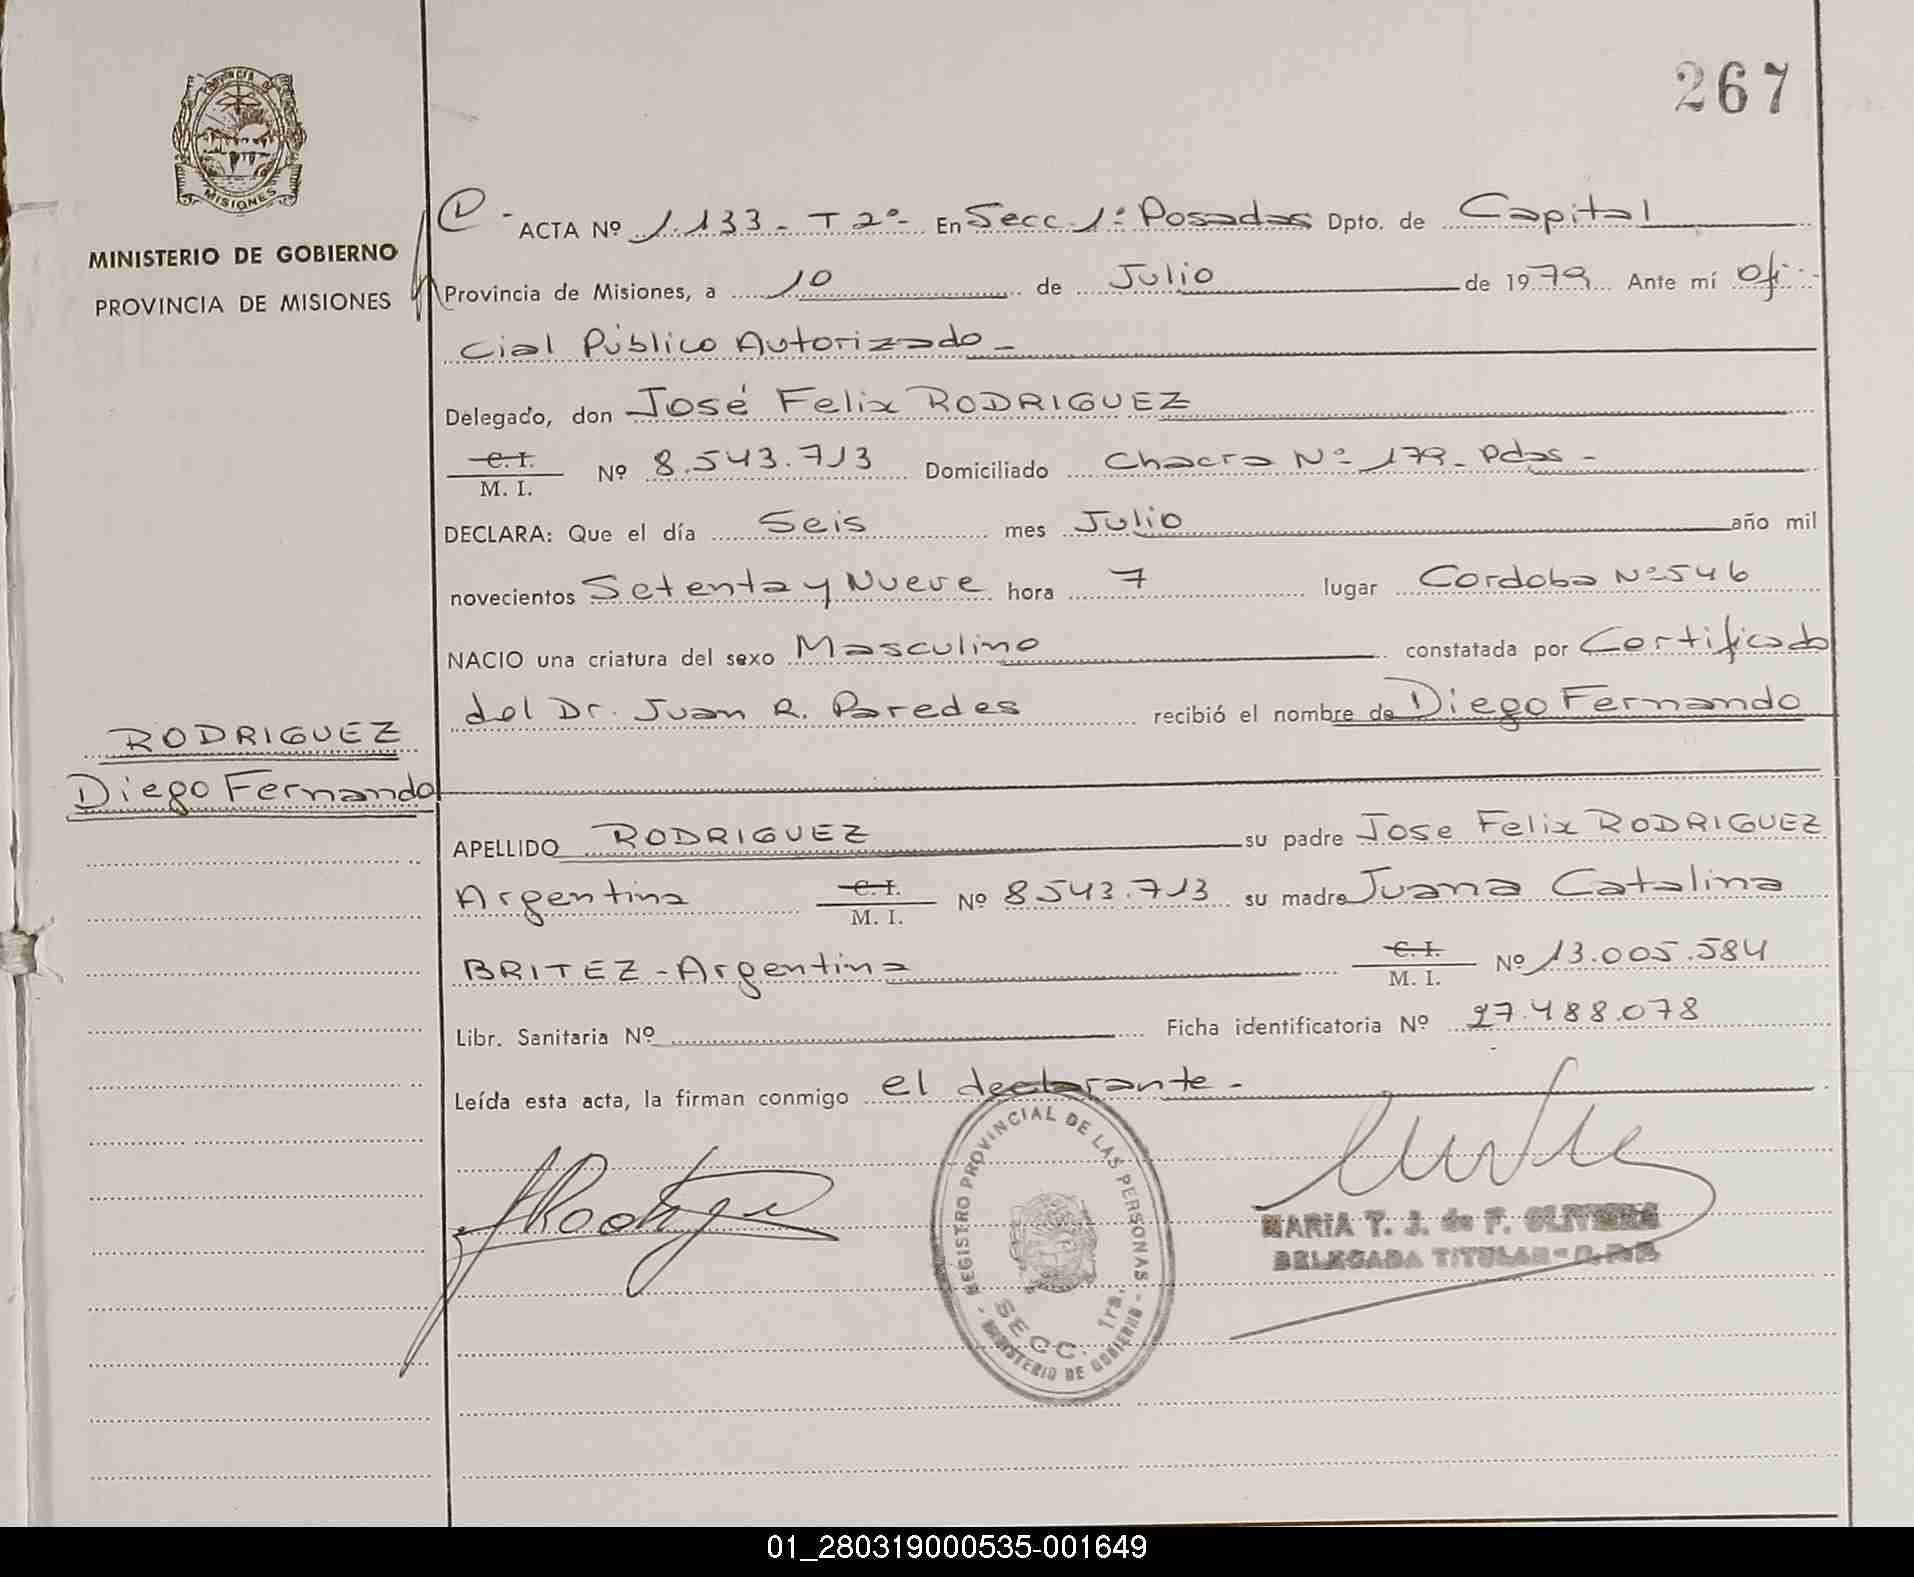 267
PROVINCIA DE
MISIONES
MINISTERIO DE GOBIERNO
PROVINCIA DE MISIONES
ACTA Nº 1.133 - T 2º- En Secc. 1ª Posadas Dpto. de Capital
Provincia de Misiones, a 10 de Julio de 1979 Ante mí Ofi-
cial Público Autorizado -
Delegado, don José Felix RODRIGUEZ
C. I.
M. I. Nº 8.543.713 Domiciliado Chacra Nº 179 - Pdas -
DECLARA: Que el día Seis mes Julio año mil
novecientos Setenta y Nueve hora 7 lugar Cordoba Nº 546
NACIO una criatura del sexo Masculino constatada por Certificado
del Dr. Juan R. Paredes recibió el nombre de Diego Fernando
RODRIGUEZ
Diego Fernando
APELLIDO RODRIGUEZ su padre Jose Felix RODRIGUEZ
Argentina C. I. M. I. Nº 8543.713 su madre Juana Catalina
BRITEZ - Argentina C. I. M. I. Nº 13.005.584
Libr. Sanitaria Nº Ficha identificatoria Nº 27.488.078
Leída esta acta, la firman conmigo el declarante -
REGISTRO PROVINCIAL DE LAS PERSONAS - MINISTERIO DE GOBIERNO -
SECC. 1ra.
MARIA T. J. de F. OLIVERA
DELEGADA TITULAR -
01_280319000535-001649